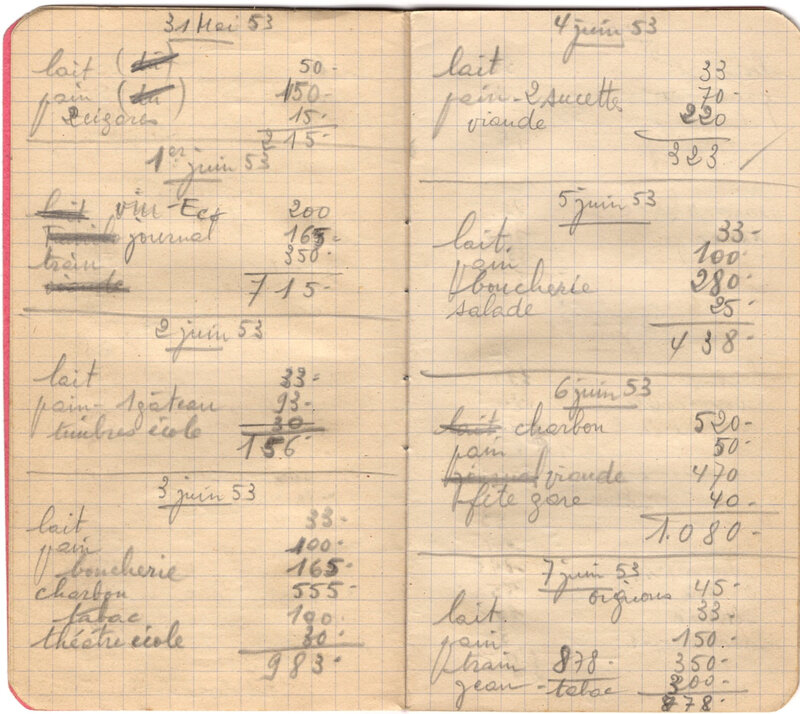 31 Mai 53
lait (du) 50-
pain (du) 150-
2 cigares 15-
215-
1er juin 53
lait vin - Ecf 200
journal 165-
train 350-
viande 715-
2 juin 53
lait 33-
pain - 1 gâteau 93-
timbres école 30-
156-
3 juin 53
lait 33-
pain 100-
boucherie 165-
charbon 555-
tabac 100-
théâtre école 30-
983-
4 juin 53
lait 33
pain - 2 sucettes 70-
viande 220
323
5 juin 53
lait. 33-
pain 100-
boucherie 280-
salade 25-
438-
6 juin 53
lait charbon 520-
pain 50-
journal viande 470
fête gare 40-
1.080-
7 juin 53
oignons 45-
lait. 33-
pain 150-
train 878- 350-
jean - tabac 300-
878-